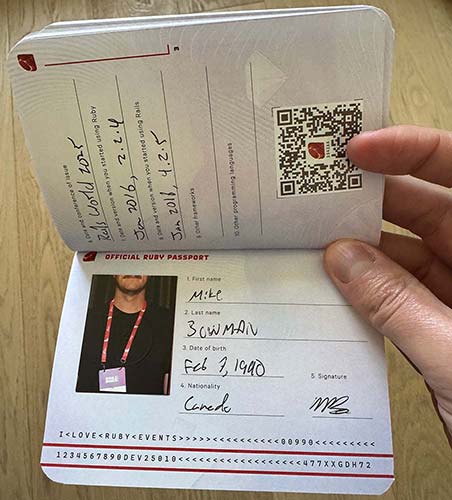 3
6. Date and conference of issue
Rails World 2025
7. Date and version when you started using Ruby
Jan 2016, 2.2.4
8. Date and version when you started using Rails
Jan 2016, 4.2.5
9. Other frameworks
10. Other programming languages
OFFICIAL RUBY PASSPORT
1. First name
Mike
2. Last name
BOWMAN
3. Date of birth
Feb 7, 1990
4. Nationality
Canada
5. Signature
I<LOVE<RUBY<EVENTS>>>><<<<<<<<<<<00990<<<<<<<<
1234567890DEV25010<<<<<<<<<<<<<<<<477XXGDH72